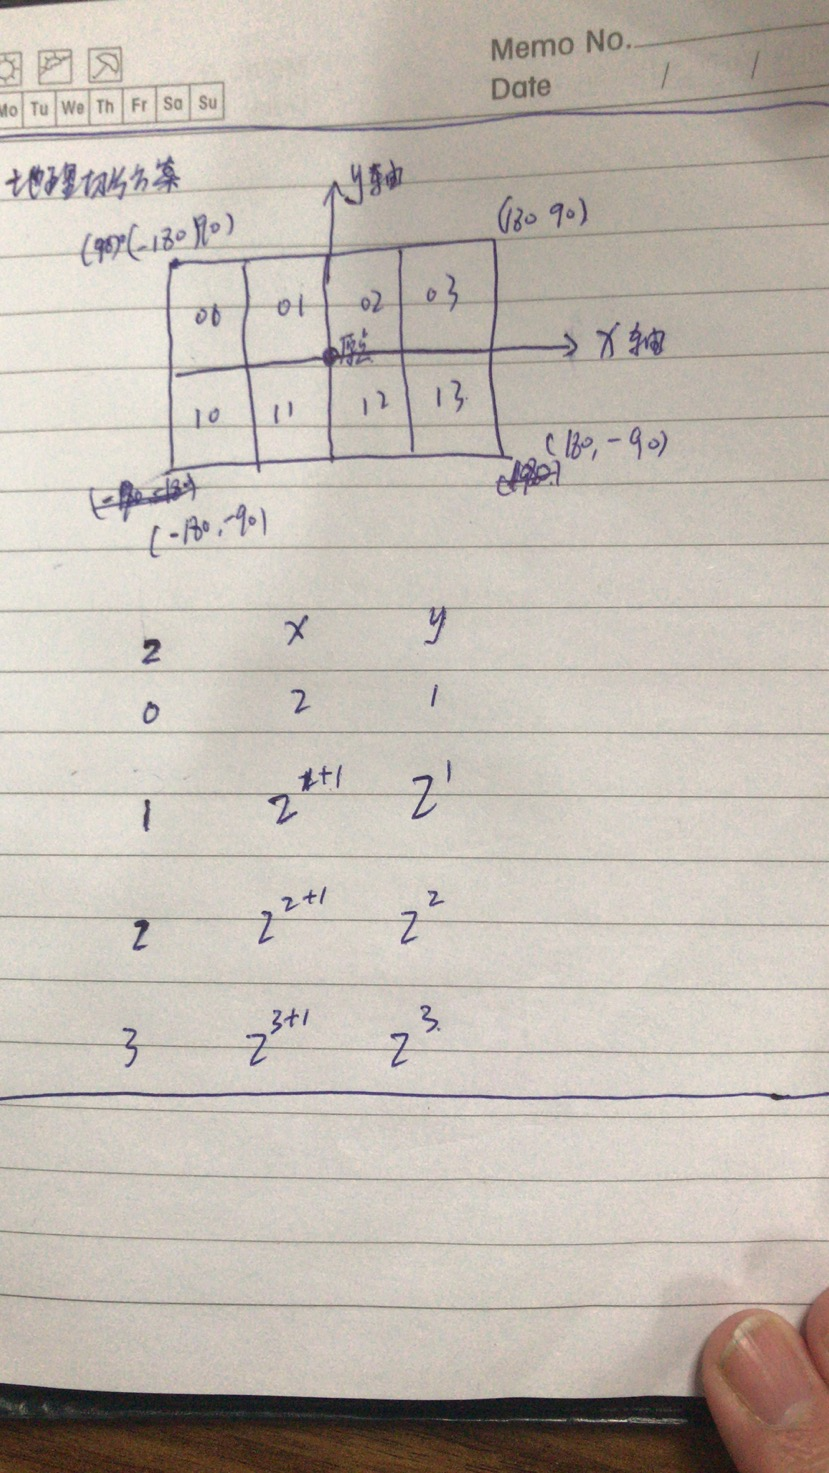 Memo No.
Date / /
Mo Tu We Th Fr Sa Su
地理切片方案
y轴
(-180 90)
(180 90)
00 01 02 03
原点
X轴
10 11 12 13
(180, -90)
(-180, -90)
z x y
0 2 1
1 2^1+1 2^1
2 2^2+1 2^2
3 2^3+1 2^3